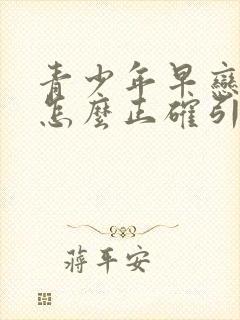 青少年早戀
怎麼正確引
蔣平安